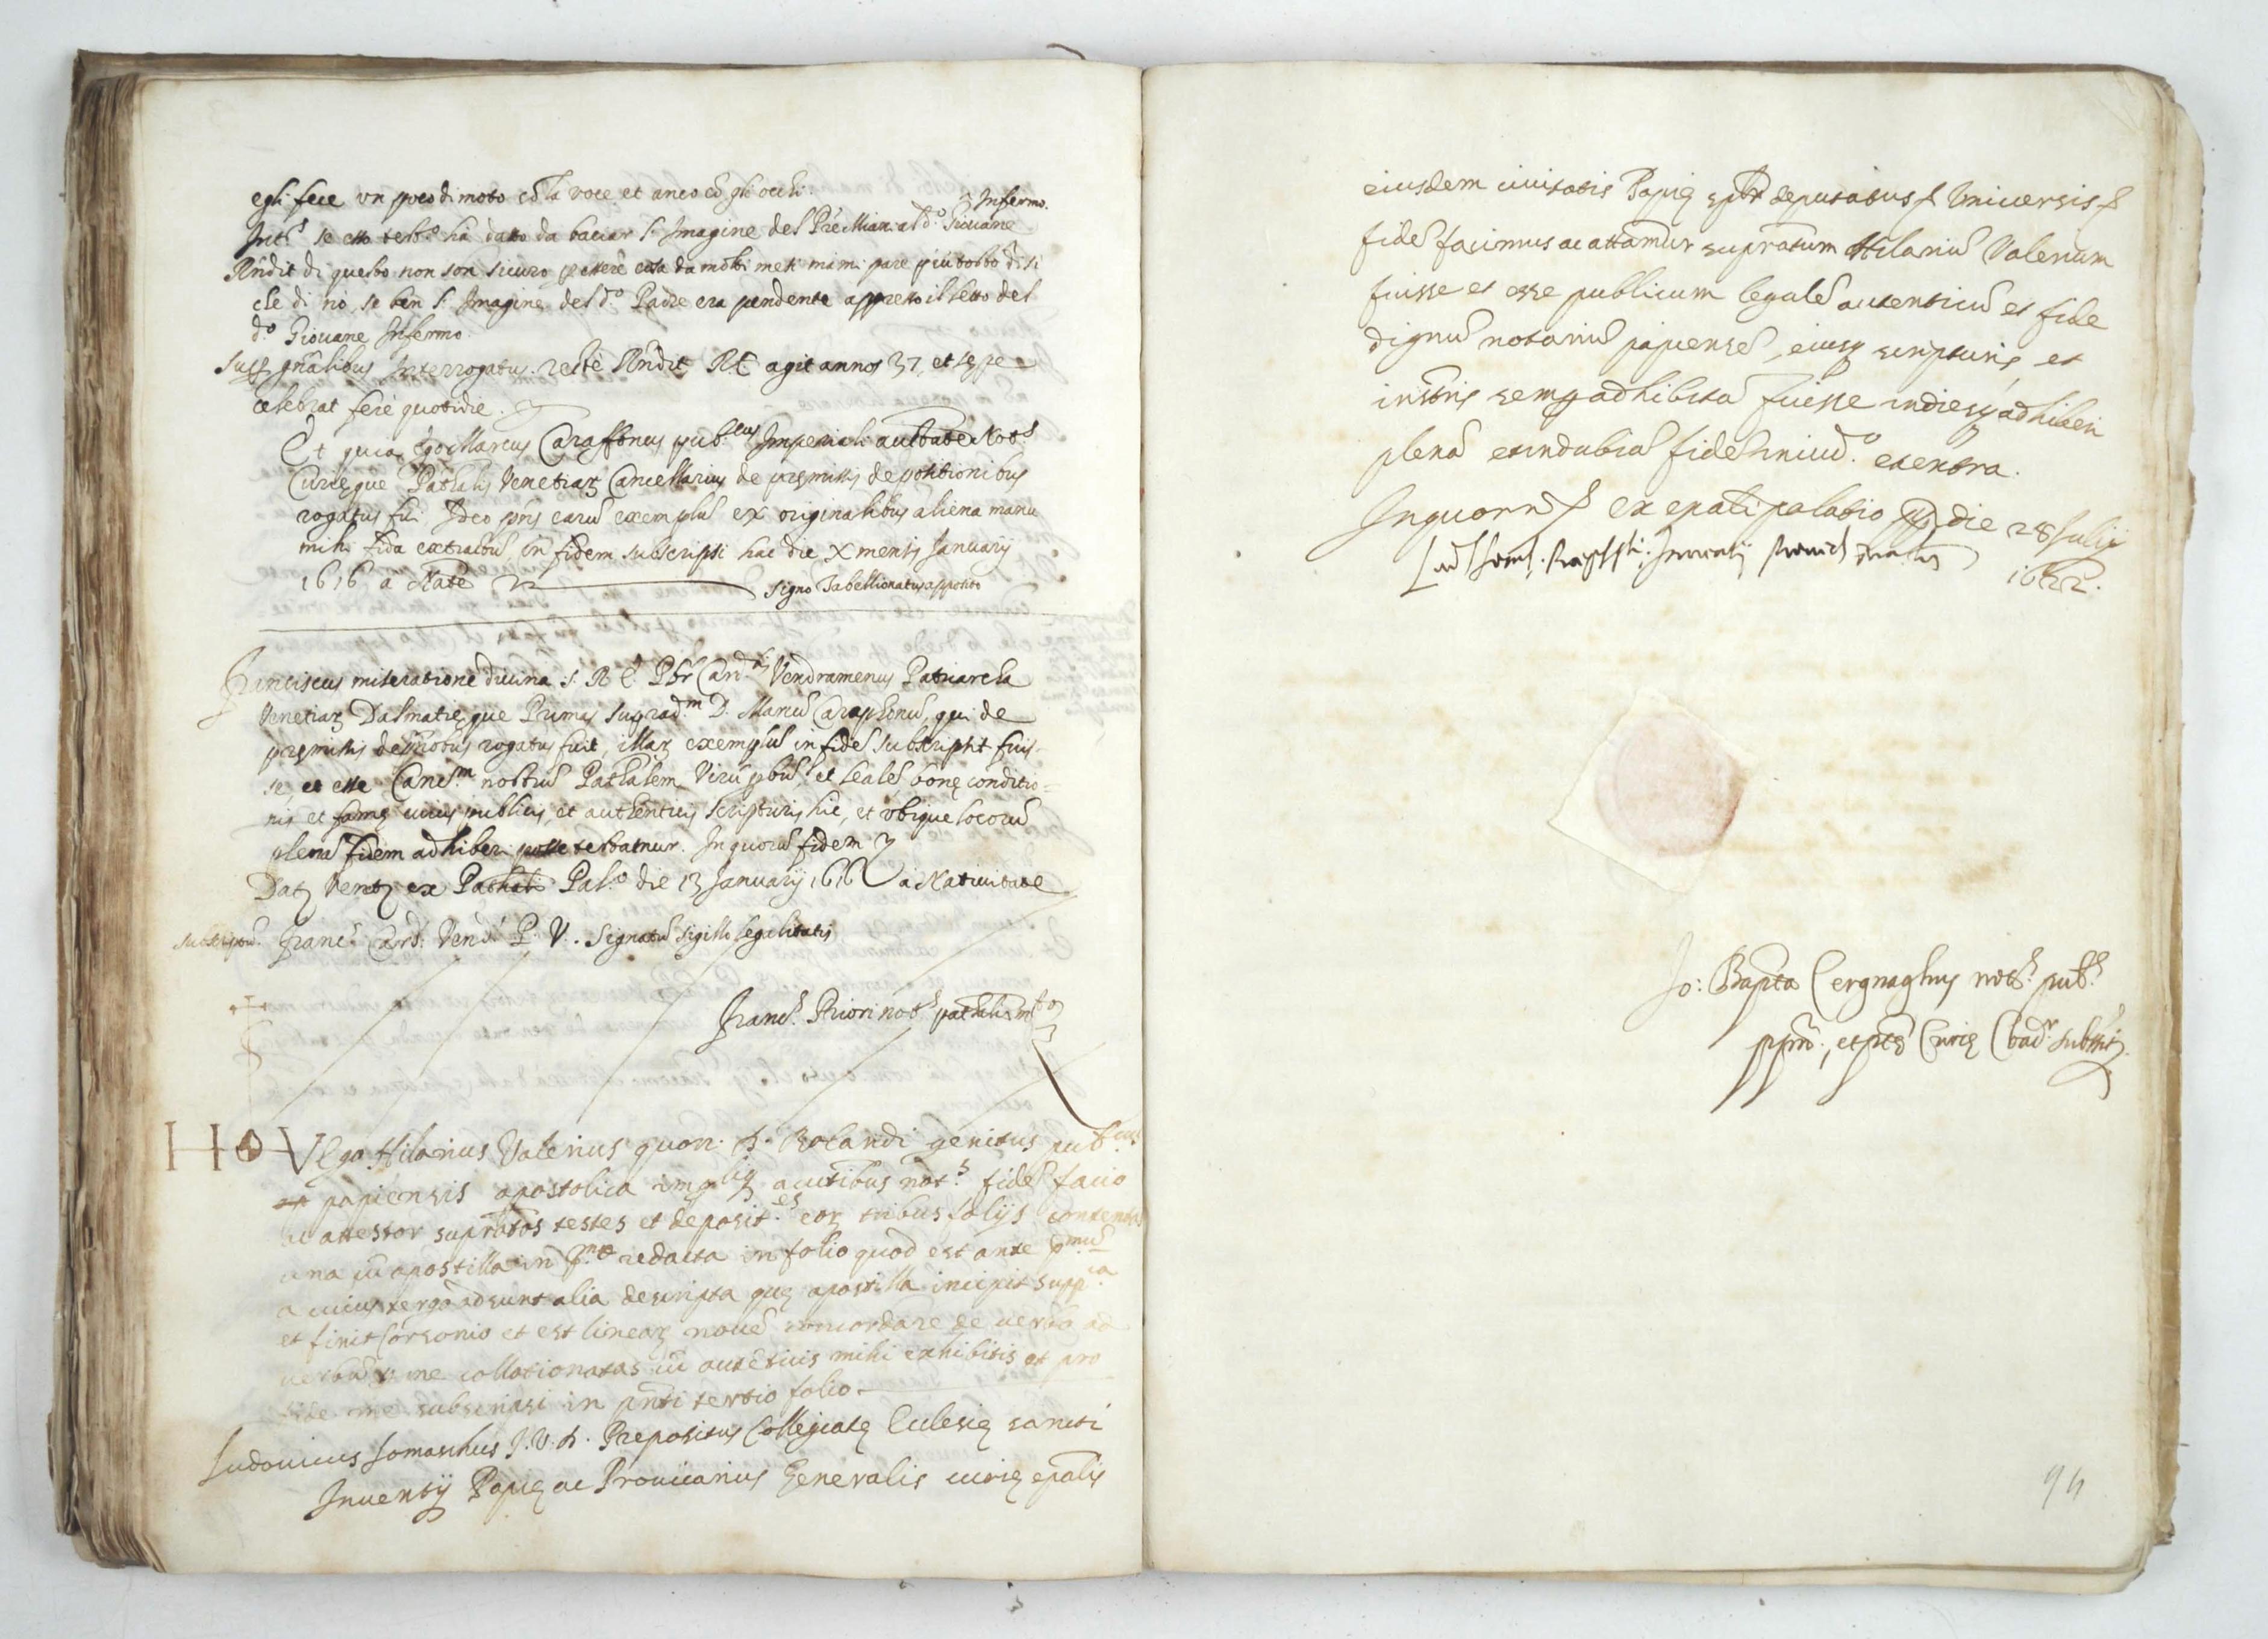 egli fece un poco di moto cō la voce et anco cō gli occhi.
Intṡ se esso testº ha datto da baciar l'Imagine del P̄re Mian. al dº Giovane Infermo.
Rñdit di questo non son sicuro per essere cosa da molti mesi ma mi pare più tosto di sì
che di nò, se ben l'Imagine del dº Padre era pendente appresso il letto del
dº Giovane Infermo.
Sup. gñalibus Interrogatus. rectè Rñdit RC agit annos 37, et sepe
celebrat ferè quotidie.
Et quia ego Marcus Caraffonus pub.cus Imperiali auctōate Notṡ
Curięque Pāthalis Venetiaꝝ Cancellarius de pręmissis depositionibus
rogatus fui Ideo pñs earū exemplū ex originalibus aliena manu
mihi fida extractū in fidem subscripsi hac die X mensis January
1616 a Natē
signo Tabellionatus apposito
Franciscus miseratione divina S. R. E. Pbr Card.lis Vendramenus Patriarcha
Venetiaꝝ Dalmatięque Primas suprad.m D. Marcū Caraphonū, qui de
pręmissis deposōnibus rogatus fuit, illaꝝ exemplū in fidē subscripsit fuis-
se et esse Canc.m nostrū Pāthalem Virū pbū, et legalē, bonę conditio=
nis et famę cuius publicis, et authenticis scripturis hic, et ubique locorū
plenā fidem adhiberi posse testamur. In quorū fidem
Dat. Venet. ex Pāthali Pal.º die 13 January 1616 a Nativitate
subscriptū. Franc.s Card. Vend. P. V. . Signatū sigillo legalitatis
Franc.s Priori notṡ pathalis
H V Ego Hilarius Valerius quon. D. Rolandi genitus pub.cus
papiensis apostolica imp.liq. auctibus notṡ fidē facio
ac attestor supratos testes et deposit.es eoꝝ tribus folijs contentas
una cū apostilla in redacta in folio quod est ante p.mū
a cuius tergo adsunt alia descripta quę apostilla incipit supp.ca
et finit Corsonio et est lineaꝝ novē concordare de verbo ad
verbū p me collationatas cū autēticis mihi exhibitis et pro
fide me subscripsi in pñti tertio folio.
Ludovicus Somaschus J. V. D. Prepositus Collegiatę Ecclesię sancti
Inventij Papię ac Provicarius Generalis curię epalis
eiusdem civitatis Papię deputatus Universis
fidē facimus ac attamur supratum Hilariū Valerium
fuisse et esse publicum legalē autenticū et fide
dignū notariū papiensē, eiusq scripturis et
instris semp adhibitā fuisse indiesq adhiberi
plenā et indubiā fidē in iud.º et extra.
In quorū ex epali palatio die 28 Julij
1622.
Jo: Bapta Cergnaghus notṡ pubṡ